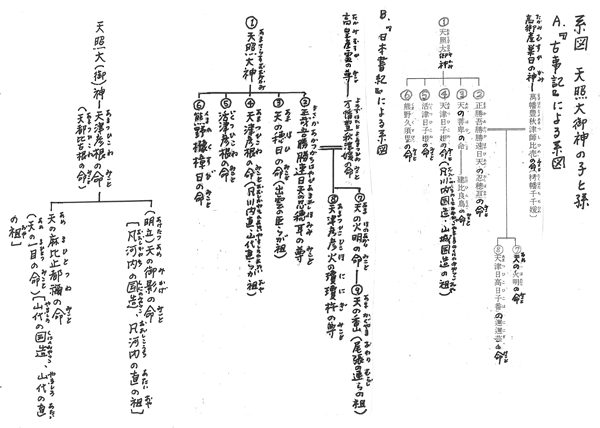 系図 天照大御神の子と孫
A.『古事記』による系図
高御産巣日の神
萬幡豊秋津師比売の命
①天照大御神
②正勝吾勝勝速日天の忍穂耳の命
③天の菩卑の命
建比良鳥の命
④天津日子根の命(凡川内国造・山城国造の祖)
⑤活津日子根の命
⑥熊野久須毘の命
⑦天の火明の命
⑧天津日高日子番の邇邇芸の命
B.『日本書紀』による系図
高皇産霊の尊
①天照大神
②正哉吾勝勝速日天の忍穂耳の尊
③天の穂日の命(出雲の臣らが祖)
④天津彦根の命(凡川内直・山代直らが祖)
⑤活津彦根の命
⑥熊野櫲樟日の命
⑦天の火明の命
⑨天の香山(尾張の連らの祖)
⑧天津彦彦火の瓊瓊杵の尊
天照大(御)神
天津彦根の命
(天都比古根の命)
(明立)天の御影の命
[凡河内の国造、凡河内の直の祖]
天の麻比止都禰の命
(天の一目の命)[山代の国造、山代の直の祖]